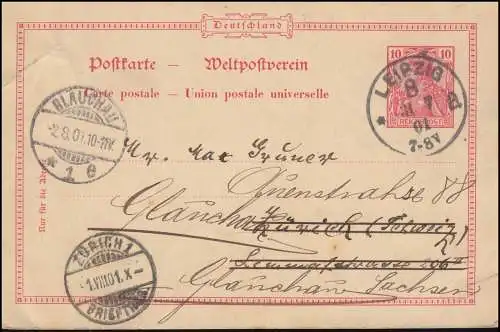 Deutschland
Postkarte – Weltpostverein
Carte postale – Union postale universelle
10 10
REICHSPOST
LEIPZIG
8
31 7
01
7-8V
GLAUCHAU
2.8.01.10-11V.
* 1 e
Nur für die
Mr. Max Gruner
Quenstrahse 88
Glauchau
Zürich (Schweiz)
Glauchau Sachsen
ZÜRICH 1
1.VIII.01.X–
BRIEFTRÄG